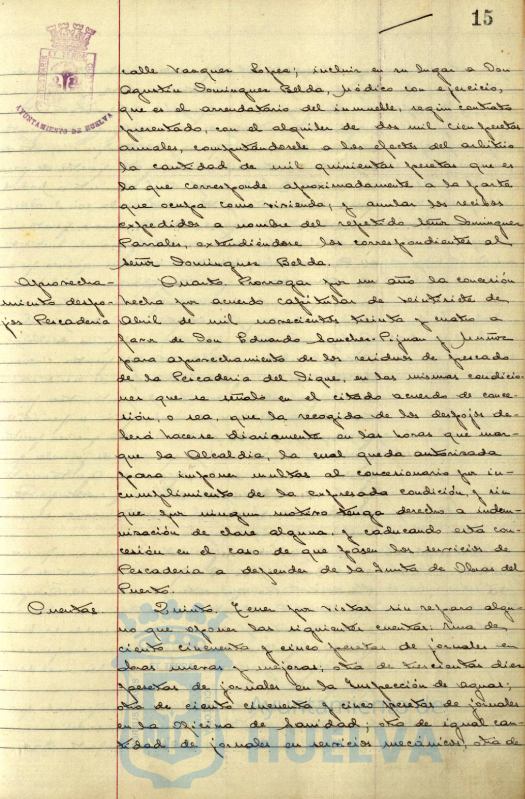 15
AYUNTAMIENTO DE HUELVA
calle Vasquez Lopez; incluir en su lugar a Don
Agustín Dominguez Belda, Médico con ejercicio,
que es el arrendatario del inmueble, según contrato
presentado, con el alquiler de dos mil cien pesetas
anuales, computándosele a los efectos del arbitrio
la cantidad de mil quinientas pesetas que es
la que corresponde aproximadamente a la parte
que ocupa como vivienda, y anular los recibos
expedidos a nombre del repetido señor Dominguez
Parrales, extendiéndose los correspondientes al
señor Dominguez Belda.
Aprovecha-
miento despo-
jos Pescaderia
Cuarto. Prorrogar por un año la concesión
hecha por acuerdo capitular de veintisiete de
Abril de mil novecientos treinta y cuatro a
favor de Don Eduardo Sanchez-Pijuan y Muñoz
para aprovechamiento de los residuos de pescado
de la Pescaderia del Dique, en las mismas condicio-
nes que se señaló en el citado acuerdo de conce-
sión, o sea, que la recogida de los despojos de-
berá hacerse diariamente en las horas que mar-
que la Alcaldia, la cual queda autorizada
para imponer multas al concesionario por in-
cumplimiento de la expresada condición, y sin
que por ningun motivo tenga derecho a indem-
nización de clase alguna, y caducando esta con-
cesión en el caso de que pasen los servicios de
Pescaderia a depender de la Junta de Obras del
Puerto.
Cuentas
Quinto. Tener por vistas sin reparo algu-
no que oponer las siguientes cuentas: Una de
ciento cincuenta y cinco pesetas de jornales en
obras nuevas y mejoras; otra de trescientas diez
pesetas de jornales en la Inspección de aguas;
otra de ciento cincuenta y cinco pesetas de jornales
en la Oficina de Sanidad; otra de igual can-
tidad de jornales en servicios mecánicos; otra de
HUELVA